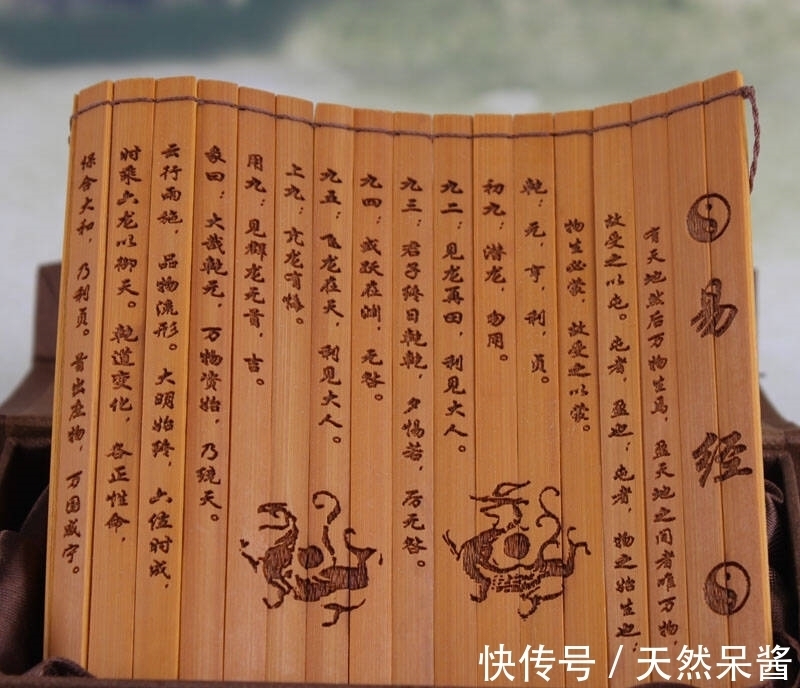 易经
有天地然后万物生焉，盈天地之间者唯万物，
故受之以屯。屯者，盈也；屯者，物之始生也；
物生必蒙，故受之以蒙。
乾：元，亨，利，贞。
初九：潜龙，勿用。
九二：见龙再田，利见大人。
九三：君子终日乾乾，夕惕若，厉无咎。
九四：或跃在渊，无咎。
九五：飞龙在天，利见大人。
上九：亢龙有悔。
用九：见群龙无首，吉。
彖曰：大哉乾元，万物资始，乃统天。
云行雨施，品物流形。大明始终，六位时成，
时乘六龙以御天。乾道变化，各正性命，
保合大和，乃利贞。首出庶物，万国咸宁。
快传号 / 天然呆酱